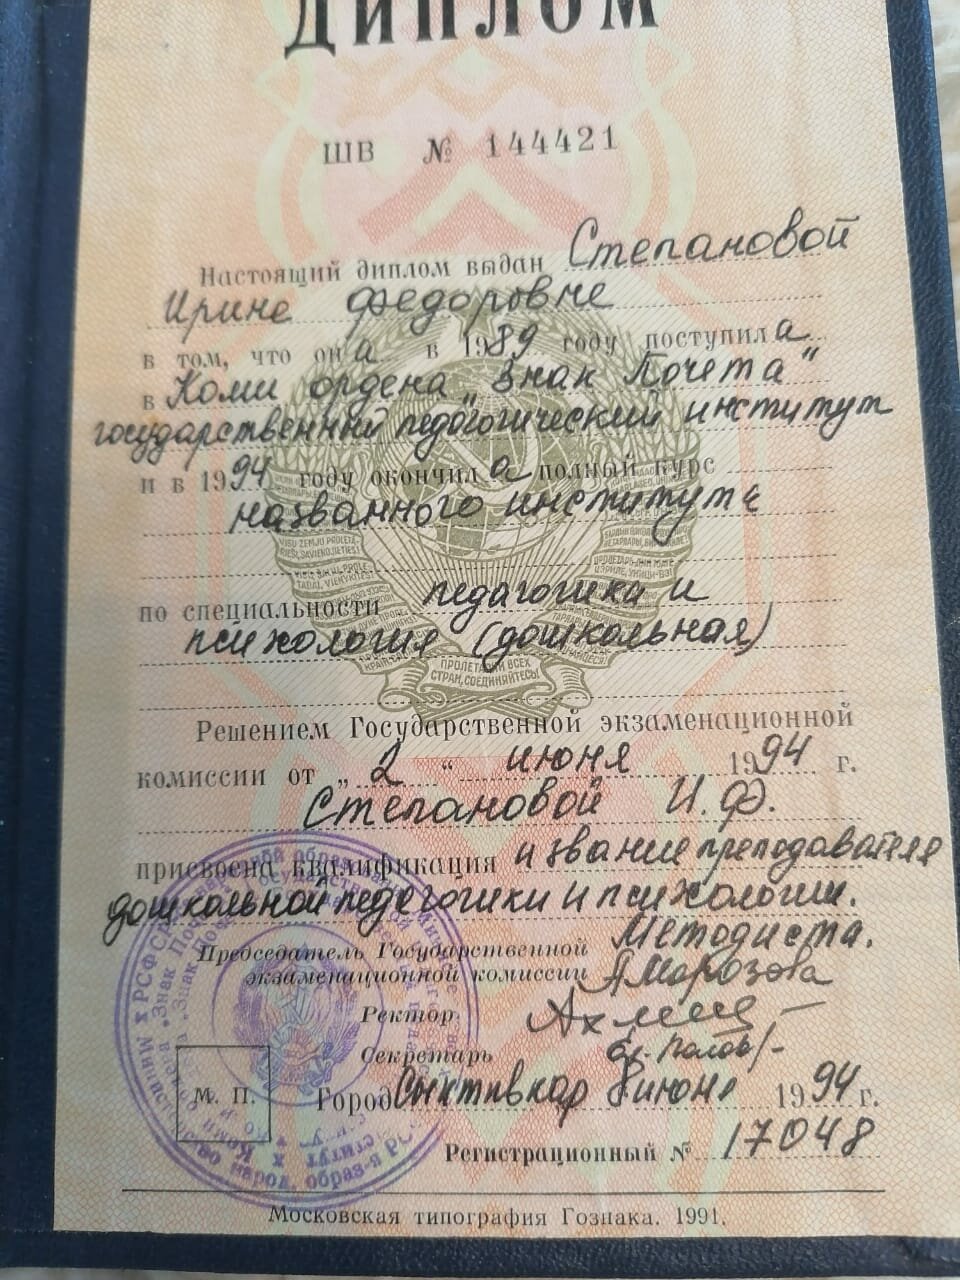 ДИПЛОМ
ШВ № 144421
Настоящий диплом выдан Степановой
Ирине Федоровне
в том, что она в 1989 году поступила
в Коми ордена „Знак Почета"
государственный педогогический институт
и в 1994 году окончила полный курс
названного института
по специальности педагогика и
психология (дошкольная)
Решением Государственной экзаменационной
комиссии от „2" июня 1994 г.
Степановой И.Ф.
присвоена квалификация и звание преподавателя
дошкольной педагогики и психологии.
Методиста.
Председатель Государственной
экзаменационной комиссии АМорозова
Ректор
Секретарь
М. П.
Город Сыктывкар 8 июня 1994 г.
Регистрационный № 17048
Московская типография Гознака. 1991.
ПРОЛЕТАРИИ ВСЕХ
СТРАН, СОЕДИНЯЙТЕСЬ!